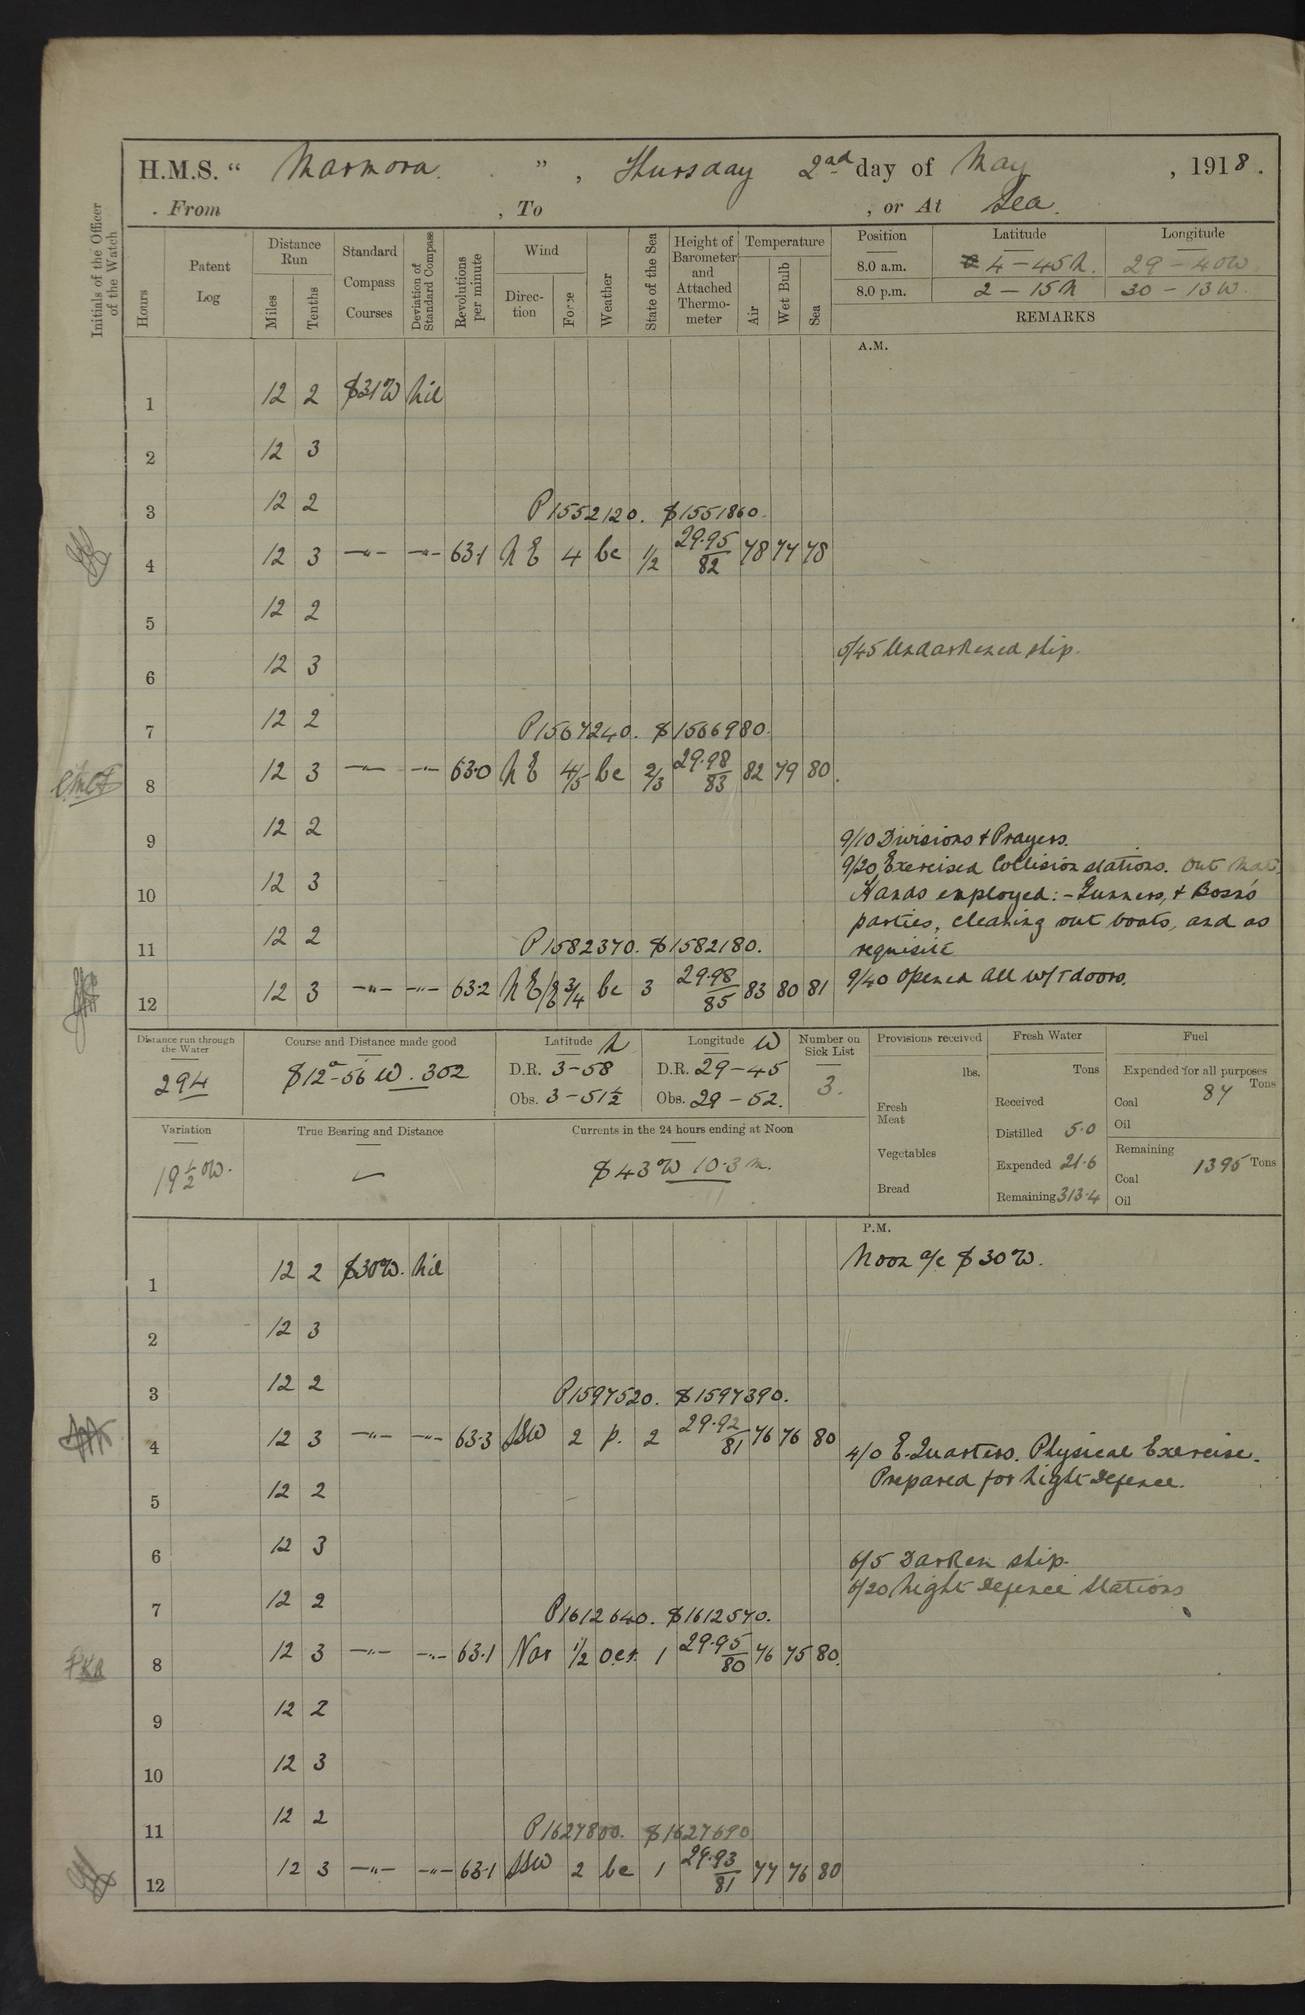 H.M.S. “ Marmora. ” , Thursday 2nd day of May , 1918.
From , To , or At Sea.
Initials of the Officer of the Watch
Hours
Patent Log
Distance Run
Miles
Tenths
Standard Compass Courses
Deviation of Standard Compass
Revolutions per minute
Wind
Direction
Force
Weather
State of the Sea
Height of Barometer and Attached Thermometer
Temperature
Air
Wet Bulb
Sea
Position Latitude Longitude
8.0 a.m. 4-45N. 29-40W
8.0 p.m. 2-15N 30-13W.
REMARKS
A.M.
1 12 2 S31W Nil
2 12 3
3 12 2 P1552120. S1551860.
4 12 3 -"- -"- 63.1 NE 4 bc 1/2 29.95/82 78 77 78
5 12 2
5/45 Undarkened ship.
6 12 3
7 12 2 P1567240. S1566980.
8 12 3 -"- -"- 63.0 NE 4/5 bc 2/3 29.98/83 82 79 80
9 12 2
9/10 Divisions & Prayers.
9/20 Exercised Collision stations. Out Mat.
10 12 3
Hands employed:- Gunners, & Bosns
parties, cleaning out boats, and as
11 12 2 P1582370. S1582180.
requisite
9/40 Opened all W/T doors.
12 12 3 -"- -"- 63.2 NE/E 3/4 bc 3 29.98/85 83 80 81
Distance run through the Water
294
Course and Distance made good
S12°-56 W. 302
Latitude N
D.R. 3-58
Obs. 3-51½
Longitude W
D.R. 29-45
Obs. 29-52.
Number on Sick List
3.
Provisions received
lbs.
Fresh Meat
Vegetables
Bread
Fresh Water
Tons
Received
Distilled 5.0
Expended 21.6
Remaining 313.4
Fuel
Expended for all purposes
Tons
Coal 87
Oil
Remaining
Coal 1395 Tons
Oil
Variation
19½°W.
True Bearing and Distance
Currents in the 24 hours ending at Noon
S 43 W 10.3 m.
P.M.
Noon a/c S 30 W.
1 12 2 S30W. Nil
2 12 3
3 12 2 P1597520. S1597390.
4 12 3 -"- -"- 63.3 SSW 2 p. 2 29.92/81 76 76 80
4/0 E. Quarters. Physical Exercise.
Prepared for Night Defence.
5 12 2
6 12 3
6/5 Darken ship.
6/20 Night Defence Stations
7 12 2 P1612640. S1612570.
8 12 3 -"- -"- 63.1 Var 1/2 o.c.r. 1 29.95/80 76 75 80.
9 12 2
10 12 3
11 12 2 P1627800. S1627690
12 12 3 -"- -"- 63.1 SSW 2 bc 1 29.93/81 77 76 80